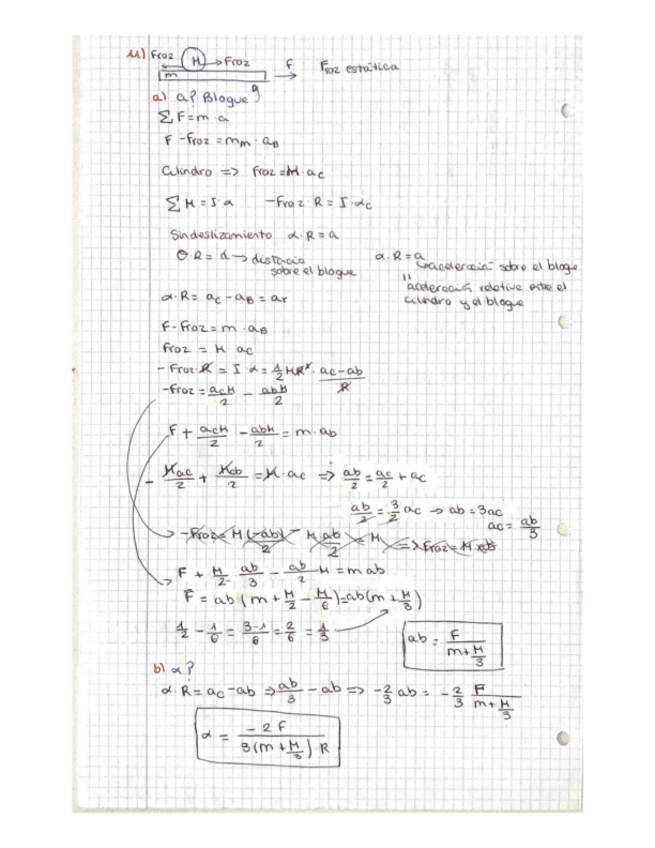 11) Froz M → Froz F → Froz estática
m
a) a? Bloque
ΣF = m · a
F - Froz = mm · aB
Cilindro => Froz = M · ac
ΣM = I · α - Froz · R = I · αc
Sin deslizamiento α · R = a
θ · R = d → distancia sobre el bloque
α · R = a → aceleración sobre el bloque
" aceleración relative entre el cilindro y el bloque
α · R = ac - aB = ar
F - Froz = m · aB
Froz = M · ac
- Froz · R = I · α = 1/2 MR² · (ac - ab)/R
- Froz = acM/2 - abM/2
F + acM/2 - abM/2 = m · ab
- Mac/2 + Mab/2 = M · ac => ab/2 = ac/2 + ac
ab/2 = 3/2 ac → ab = 3ac
ac = ab/3
F + M/2 · ab/3 - ab/2 M = m ab
F = ab (m + M/2 - M/6) = ab (m + M/3)
1/2 - 1/6 = 3-1/6 = 2/6 = 1/3
ab = F/(m + M/3)
b) α?
α · R = ac - ab => ab/3 - ab => - 2/3 ab = - 2/3 F/(m + M/3)
α = - 2F/(3(m + M/3) R)